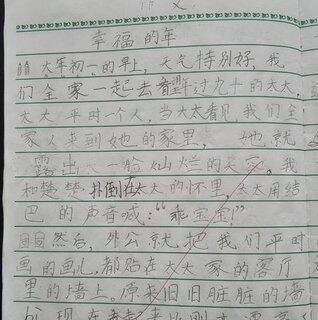 作文
幸福的年
大年初一的早上,天气特别好,我
们全家一起去看望年过九十的太太,
太太平时一个人,当太太看见我们全
家人来到她的家里,她就
露出一脸灿烂的笑容。我
和楚楚扑倒在太太的怀里,太太用结
巴的声音喊:“乖宝宝”
然后,外公就把我们平时
画的画儿,都贴在太太家的客厅
里的墙上。原来旧旧脏脏的墙
现在看起来